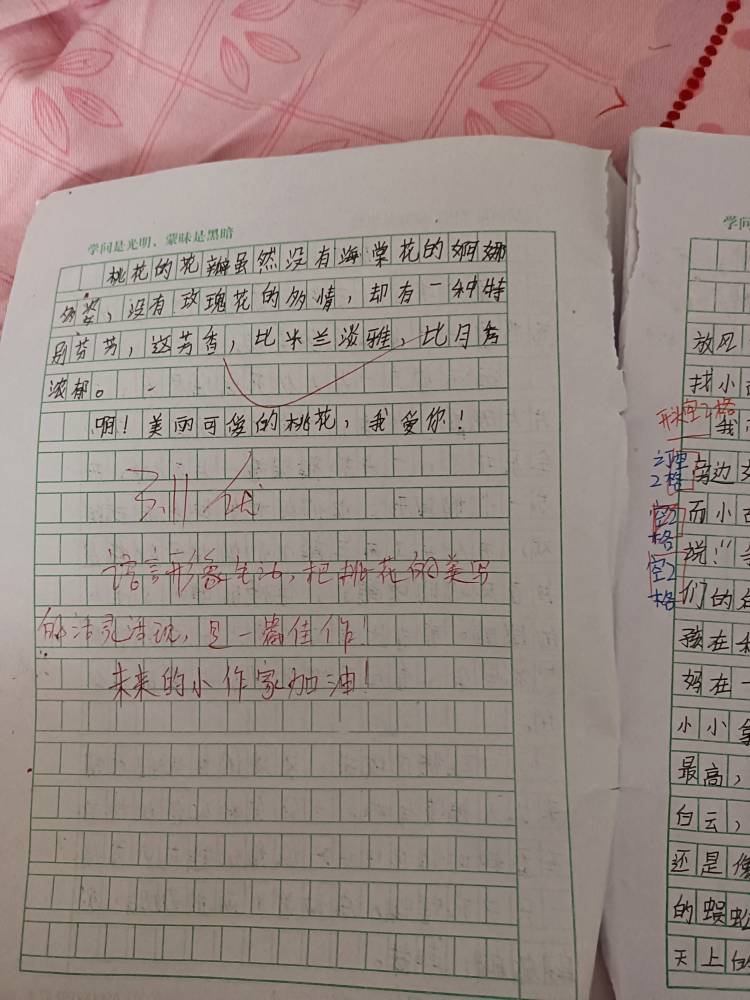 学问是光明、蒙昧是黑暗
桃花的花瓣虽然没有海棠花的婀娜
多姿,没有玫瑰花的多情,却有一种特
别芬芳,这芳香,比米兰淡雅,比月季
浓郁。
啊!美丽可爱的桃花,我爱你!
语言形象生动,把桃花的美写
的活灵活现,是一篇佳作!
未来的小作家加油!
学问
放风
找小
空2格
我
旁边
2格
而小
空2
格
说:"
空2
格
们的
孩在
妈在一
小小拿
最高,
白云,
还是像
的蜈蚣
天上的